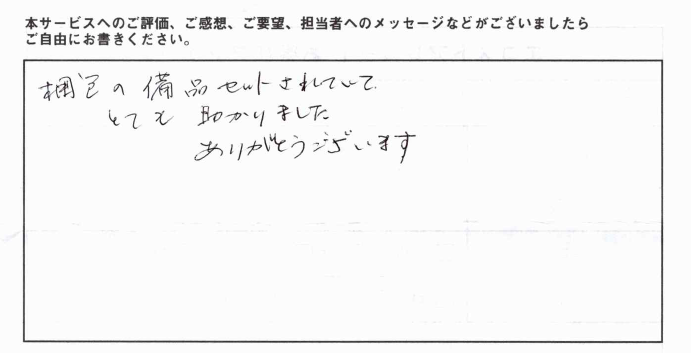 本サービスへのご評価、ご感想、ご要望、担当者へのメッセージなどがございましたら
ご自由にお書きください。
梱包の備品セットされていて
とても 助かりました
ありがとうございます